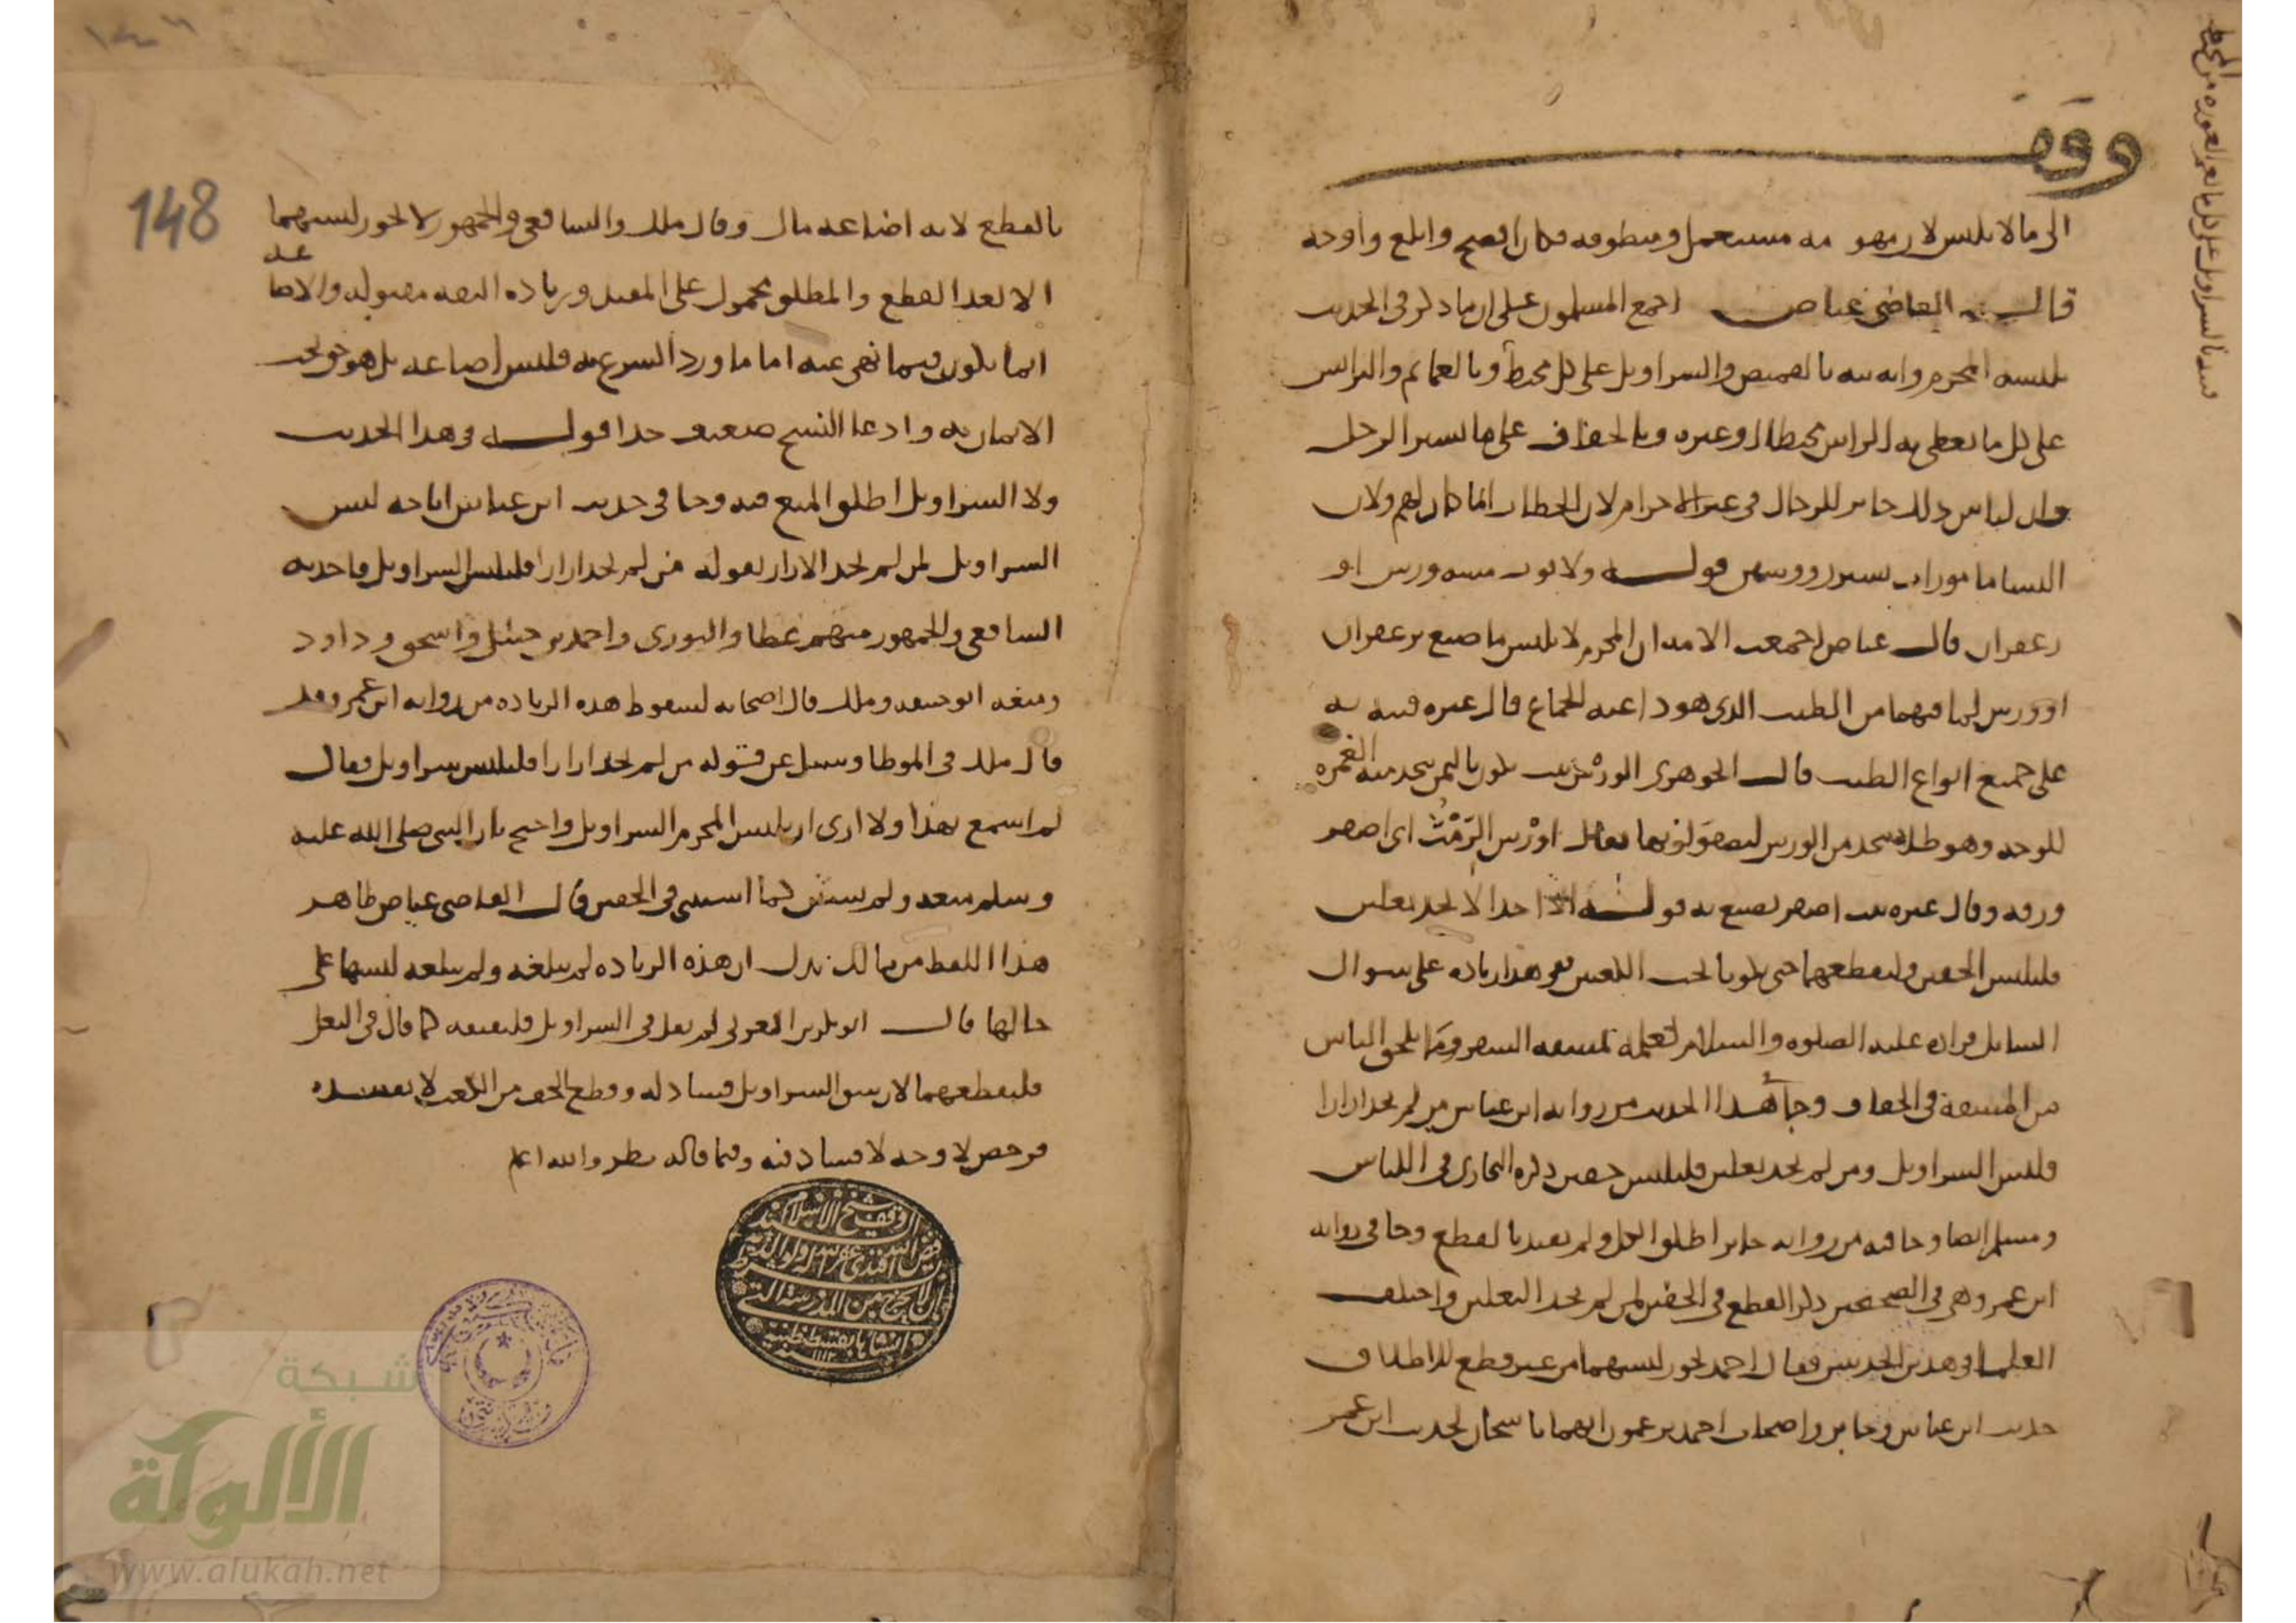 وقف
الى ما لا يلبس لان مفهومه مستعمل ومنطوقه فكان افصح وابلغ واوجه
قال القاضي عياض اجمع المسلمون على ان ما ذكر في الحديث
يلبسه المحرم وانه نبه بالقميص والسراويل على كل مخيط وبالعمايم والبرانس
على كل ما يغطى به الراس مخيطا او غيره وبالخفاف على ما يستر الرجل
وان لباس ذلك جايز للرجال في غير الاحرام لان الخطاب انما كان لهم ولان
النسا مامورات بستر رووسهن قوله ولا ثوب مسه ورس او
زعفران قال عياض اجمعت الامة ان المحرم لا يلبس ما صبغ بزعفران
او ورس لما فيهما من الطيب الذي هو داعية للجماع قال غيره فنبه به
على جميع انواع الطيب قال الجوهري الورس نبت يكون باليمن يتخذ منه الغمرة
للوجه وهو طلا يتخذ من الورس ليصفو لونها يقال اورس الرمث اى اصفر
ورقه وقال غيره نبت اصفر يصبغ به قوله الا احد لا يجد نعلين
فليلبس الخفين وليقطعهما حتى يكونا تحت الكعبين هذا زيادة على سوال
السايل فزاده عليه الصلوة والسلام لعلمه بمشقة السفر وما يلحق الناس
من المشقة في الحفا وجا هذا الحديث من رواية ابن عباس من لم يجد ازارا
فليلبس السراويل ومن لم يجد نعلين فليلبس خفين ذكره البخاري في اللباس
ومسلم ايضا وجا فيه من رواية جابر اطلق الكل ولم يقيد بالقطع وجا في رواية
ابن عمر وهي في الصحيحين ذكر القطع في الخفين لمن لم يجد النعلين واختلف
العلما في هذين الحديثين فقال احمد يجوز لبسهما من غير قطع للاطلاق
حديث ابن عباس وجابر واصحاب احمد يزعمون انهما ناسخان لحديث ابن عمر
148
بالقطع لانه اضاعة مال وقال ملك والشافعي والجمهور لا يجوز لبسهما
الا بعد القطع والمطلق محمول على المقيد وزيادة الثقة مقبولة والاضاعة
انما تكون فيما نهي عنه اما ما ورد الشرع به فليس اضاعة بل هو حق يجب
الاتيان به وادعا النسخ ضعيف جدا قوله في هذا الحديث
ولا السراويل اطلق المنع فيه وجا في حديث ابن عباس اباحة لبس
السراويل لمن لم يجد الازار بقوله من لم يجد ازارا فليلبس السراويل واخذ به
الشافعي والجمهور منهم عطا والثوري واحمد بن حنبل واسحق وداود
ومنعه ابو حنيفة وملك قال اصحابه لسقوط هذه الزيادة من رواية ابن عمر وقد
قال ملك في الموطا وسيل عن قوله من لم يجد ازارا فليلبس سراويل فقال
لم اسمع بهذا ولا ارى ان يلبس المحرم السراويل واحتج بان النبي صلى الله عليه
وسلم منعه ولم يستثن كما استثنى في الخفين قال القاضي عياض ظاهر
هذا اللفظ من مالك يدل ان هذه الزيادة لم تبلغه ولم يبلغه لبسها على
حالها قال ابو بكر بن العربي لم يقل في السراويل فليفتقه كما قال في النعل
فليقطعهما لان شق السراويل فساد له وقطع الخف من الكعب لا يفسده
فرخص لا وجه لا فساد فيه وفيما قاله نظر والله اعلم
شبكة
الألوكة
www.alukah.net